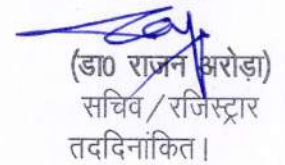 (डा0 राजन अरोड़ा)
सचिव/रजिस्ट्रार
तददिनांकित।